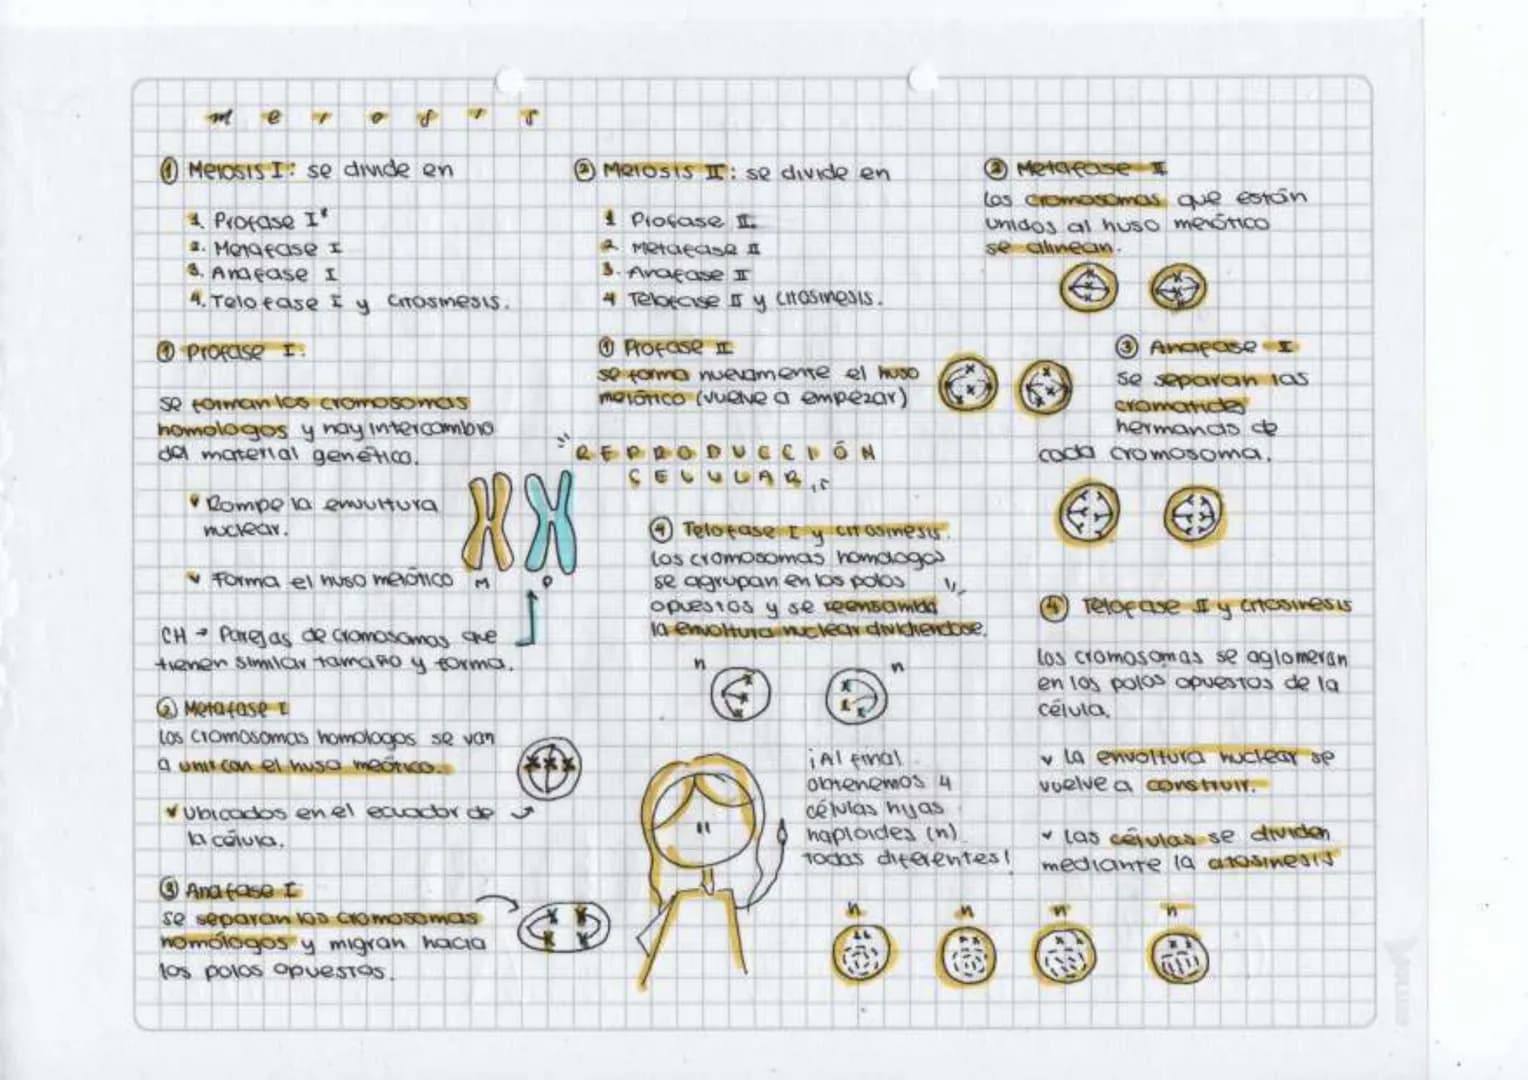 meiosis
① Meiosis I: se divide en
1. Profase I*
2. Metafase I
3. Anafase I
4. Telofase I y Citosinesis.
① Profase I.
se forman los cromosomas
homologos y hay intercambio
del material genético.
Rompe la envultura
nuclear.
Forma el huso meiótico
M P
CH → Parejas de cromosomas que
tienen similar tamaño y forma.
② Metafase I
Los cromosomas homologos se van
a unir con el huso meótico.
Ubicados en el ecuador de
la célula.
③ Anafase I
Se separan los cromosomas
homólogos y migran hacia
los polos opuestos.
② Meiosis II: se divide en
1 Profase II.
2 Metafase II
3. Anafase II
4 Telofase II y citosinesis.
① Profase II
se forma nuevamente el huso
meiótico (vuelve a empezar)
"REPRODUCCIÓN
CELULAR"
④ Telofase I y citosinesis.
Los cromosomas homologos
se agrupan en los polos
opuestos y se reensambla
la envoltura nuclear dividiendose.
n n
¡Al final
obtenemos 4
células hijas
haploides (n)
Todas diferentes!
② Metafase II
Los cromosomas que están
unidos al huso meiótico
se alinean.
③ Anafase II
Se separan las
cromatides
hermanas de
cada cromosoma.
④ Telofase II y citosinesis
Los cromosomas se aglomeran
en los polos opuestos de la
célula.
La envoltura nuclear se
vuelve a construir.
Las células se dividen
mediante la citosinesis
n n n n